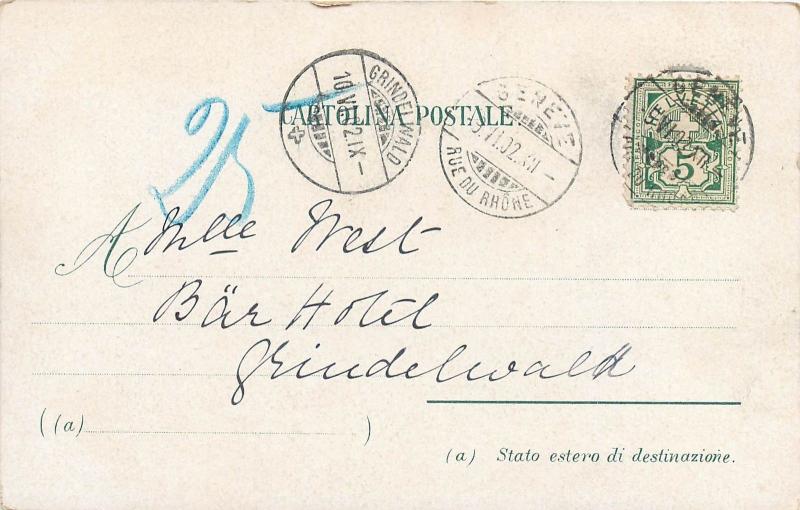 25
GRINDELWALD
10.VI.02.IX-
GENEVE
VI.02.XI-
RUE DU RHÔNE
HELVETIA
5
CARTOLINA POSTALE
A Mlle West
Bär Hotel
Grindelwald
((a) )
(a) Stato estero di destinazione.